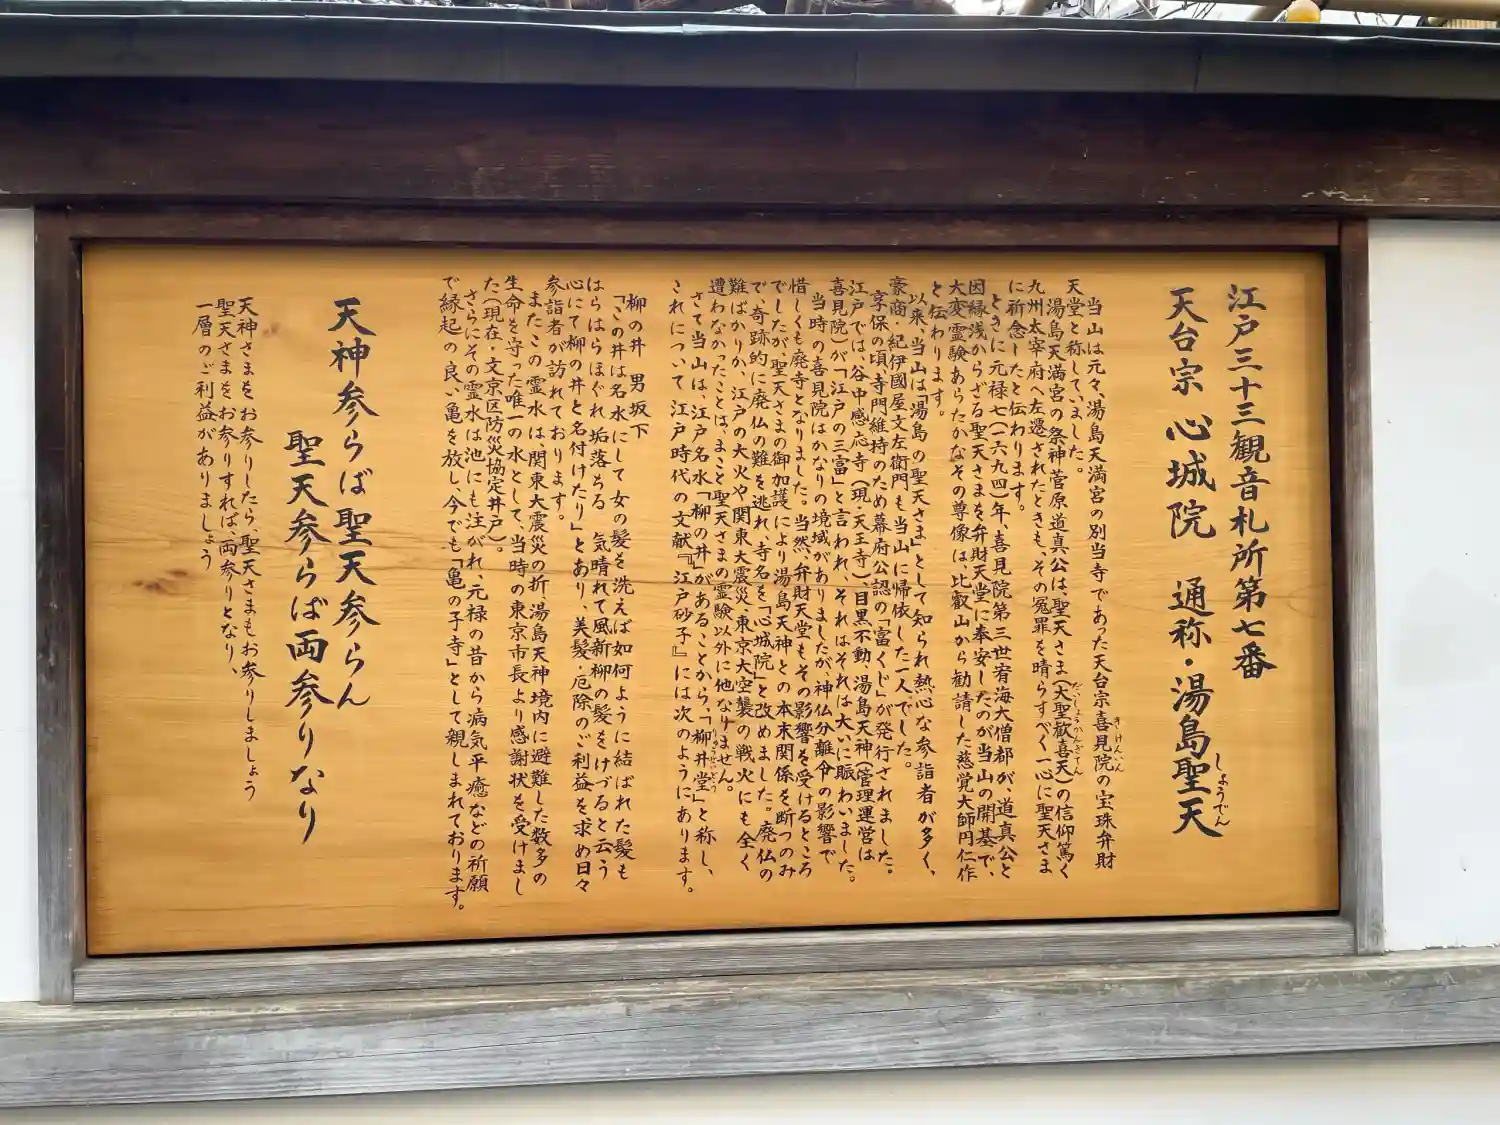 江戸三十三観音札所第七番
天台宗 心城院 通称・湯島聖天
しょうでん
当山は元々、湯島天満宮の別当寺であった天台宗喜見院の宝珠弁財
きけんいん
天堂と称していました。
湯島天満宮の祭神菅原道真公は、聖天さま（大聖歓喜天）の信仰篤く
だいしょうかんぎてん
九州太宰府へ左遷されたときも、その冤罪を晴らすべく一心に聖天さま
に祈念したと伝わります。
ときに元禄七（一六九四）年、喜見院第三世宥海大僧都が、道真公と
因縁浅からざる聖天さまを弁財天堂に奉安したのが当山の開基で、
大変霊験あらたかなその尊像は、比叡山から勧請した慈覚大師円仁作
と伝わります。
以来、当山は「湯島の聖天さま」として知られ熱心な参詣者が多く、
豪商・紀伊國屋文左衛門も当山に帰依した一人でした。
享保の頃、寺門維持のため幕府公認の「富くじ」が発行されました。
江戸では、谷中感応寺（現・天王寺）目黒不動・湯島天神（管理運営は
喜見院）が「江戸の三富」と言われ、それはそれは大いに賑わいました。
当時の喜見院はかなりの境域がありましたが神仏分離令の影響で
惜しくも廃寺となりました。当然、弁財天堂もその影響を受けるところ
でしたが、聖天さまの御加護により湯島天神との本末関係を断つのみ
で、奇跡的に廃仏の難を逃れ、寺名を「心城院」と改めました。廃仏の
難ばかりか、江戸の大火や関東大震災・東京大空襲の戦火にも全く
遭わなかったことは、まこと聖天さまの霊験以外に他なりません。
さて当山は、江戸名水「柳の井」があることから、「柳井堂」と称し、
りゅうせいどう
これについて江戸時代の文献『江戸砂子』には次のようにあります。
柳の井 男坂下
「この井は名水にして女の髪を洗えば如何ように結ばれた髪も
はらはらほぐれ垢落ちる 気晴れて風新柳の髪をけづると云う
心にて柳の井と名付けたり」とあり、美髪・厄除のご利益を求め日々
参詣者が訪れております。
またこの霊水は、関東大震災の折、湯島天神境内に避難した数多の
生命を守った唯一の水として、当時の東京市長より感謝状を受けまし
た（現在・文京区防災協定井戸）。
さらにその霊水は池にも注がれ、元禄の昔から病気平癒などの祈願
で縁起の良い亀を放し、今でも「亀の子寺」として親しまれております。
天神参らば聖天参らん
聖天参らば両参りなり
天神さまをお参りしたら、聖天さまもお参りしましょう
聖天さまをお参りすれば、両参りとなり、
一層のご利益がありましょう